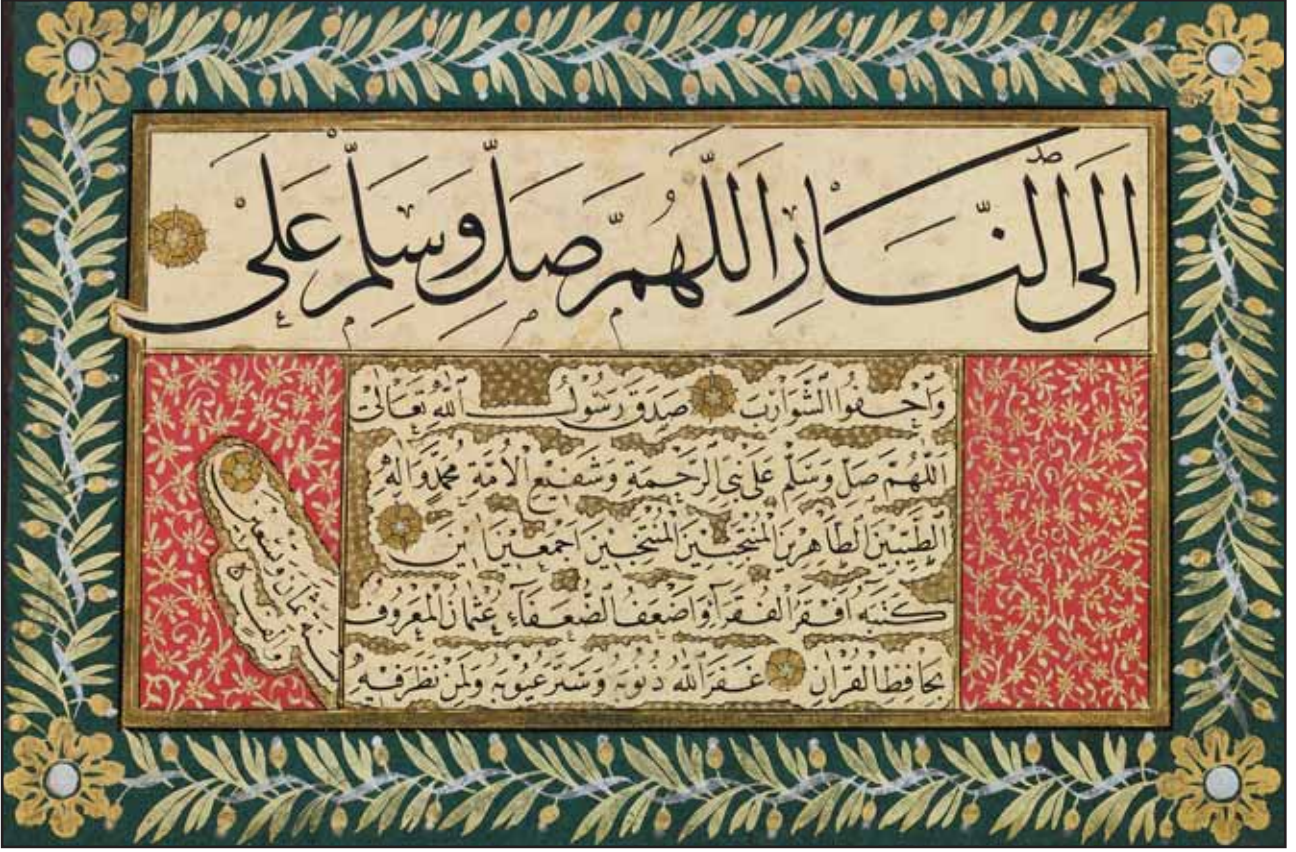 اِلَى النَّارِ اَللّٰهُمَّ صَلِّ وَسَلِّمْ عَلٰى
وَاَحْفُوا الشَّوَارِبَ صَدَقَ رَسُولُ اللهِ تَعَالٰى
اَللّٰهُمَّ صَلِّ وَسَلِّمْ عَلٰى نَبِىِّ الرَّحْمَةِ وَشَفِيعِ الْاُمَّةِ مُحَمَّدٍ وَاٰلِهِ
الطَّيِّبِينَ الطَّاهِرِينَ اَجْمَعِينَ
كَتَبَهُ اَفْقَرُ الْفُقَرَاءِ وَاَضْعَفُ الضُّعَفَاءِ عُثْمَانُ الْمَعْرُوفُ
بِحَافِظِ الْقُرْاٰنِ غَفَرَ اللهُ ذُنُوبَهُ وَسَتَرَ عُيُوبَهُ وَلِمَنْ نَظَرَ فِيهِ
سنة ثمان وتسعين